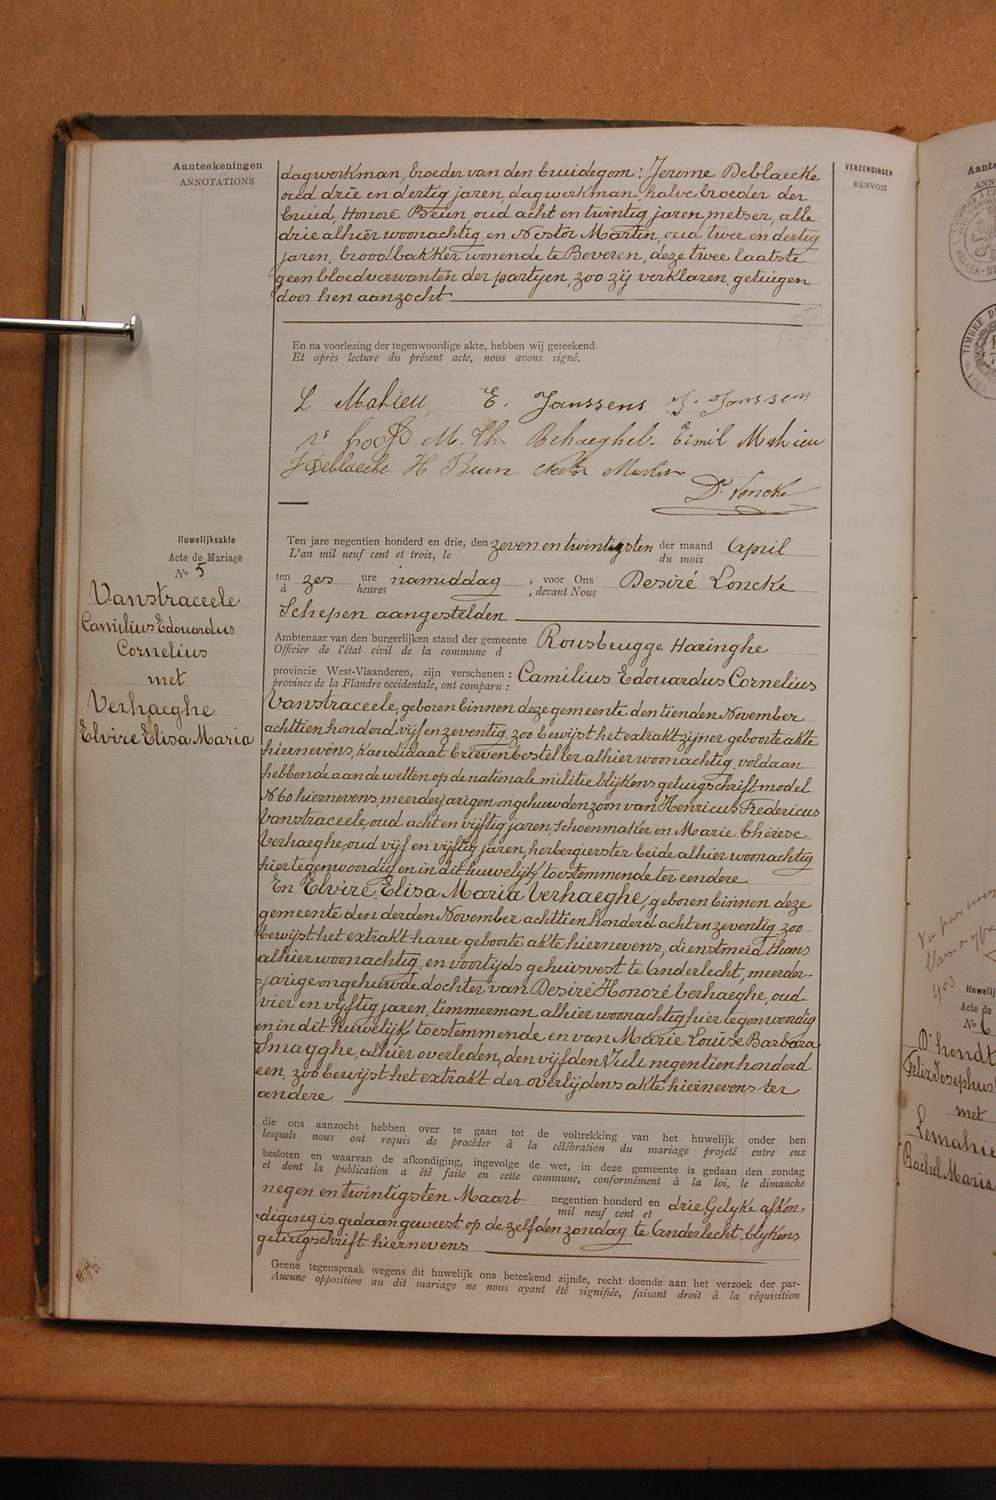 Aanteekeningen
ANNOTATIONS
VERZENDINGEN
RENVOIS
dagwerkman, broeder van den bruidegom: Jerome Deblaecke
oud drie en dertig jaren, dagwerkman, halve broeder der
bruid, Honoré Beun, oud acht en twintig jaren, metser, alle
drie alhier woonachtig en Nestor Martin, oud twee en dertig
jaren, broodbakker wonende te Beveren, deze twee laatste
geen bloedverwanten der partyen, zoo zij verklaren, getuigen
door hen aanzocht
En na voorlezing der tegenwoordige akte, hebben wij geteekend.
Et après lecture du présent acte, nous avons signé.
L Mahieu, E. Janssens J. Janssens
M. Th. Behaeghel. Emil Mahieu
J Deblaecke H Beun Nestor Martin
Dé Loncke
Huwelijksakte
Acte de Mariage
No 5
Vanstraceele
Camilius Edouardus
Cornelius
met
Verhaeghe
Elvire Elisa Maria
Ten jare negentien honderd en drie, den zeven en twintigsten der maand April
L'an mil neuf cent et trois, le du mois
ten zes ure namiddag, voor Ons Desiré Loncke
à heures , devant Nous
Schepen aangestelden
Ambtenaar van den burgerlijken stand der gemeente Rousbrugge Haringhe
Officier de l'état civil de la commune d
provincie West-Vlaanderen, zijn verschenen: Camilius Edouardus Cornelius
province de la Flandre occidentale, ont comparu:
Vanstraceele, geboren binnen deze gemeente den tienden November
achttien honderd vijf en zeventig, zoo bewijst het extrakt zijner geboorte akte
hiernevens, kandidaat brievenbesteller alhier woonachtig, voldaan
hebbende aan de wetten op de nationale militie blijkens getuigschrift model
No 60 hiernevens, meerderjarigen ongehuwden zoon van Henricus Fredericus
Vanstraceele, oud acht en vijftig jaren, schoenmaker en Marie Thérèse
Verhaeghe, oud vijf en vijftig jaren, herbergierster beide alhier woonachtig
hier tegenwoordig en in dit huwelijk toestemmende ter eendere
En Elvire Elisa Maria Verhaeghe, geboren binnen deze
gemeente den derden November achttien honderd acht en zeventig, zoo
bewijst het extrakt harer geboorte akte hiernevens, dienstmeid thans
alhier woonachtig, en voortijds gehuisvest te Anderlecht, meerder-
=jarige ongehuwde dochter van Desiré Honoré Verhaeghe, oud
vier en vijftig jaren, timmerman alhier woonachtig hier tegenwoordig
en in dit huwelijk toestemmende en van Marie Louise Barbara
Smagghe, alhier overleden, den vijfden Juli negentien honderd
een, zoo bewijst het extrakt der overlijdens akte hiernevens ter
andere
die ons aanzocht hebben over te gaan tot de voltrekking van het huwelijk onder hen
lesquels nous ont requis de procéder à la célébration du mariage projeté entre eux
besloten en waarvan de afkondiging, ingevolge de wet, in deze gemeente is gedaan den zondag
et dont la publication a été faite en cette commune, conformément à la loi, le dimanche
negen en twintigsten Maart negentien honderd en drie, Gelyke afkon-
mil neuf cent et
diging is gedaan geweest op dezelfden zondag te Anderlecht, blykens
getuigschrift hiernevens
Geene tegenspraak wegens dit huwelijk ons beteekend zijnde, recht doende aan het verzoek der par-
Aucune opposition au dit mariage ne nous ayant été signifiée, faisant droit à la réquisition
Acte de
No 6
D'hondt
Felix Josephus
met
Lemahie
Rachel Maria